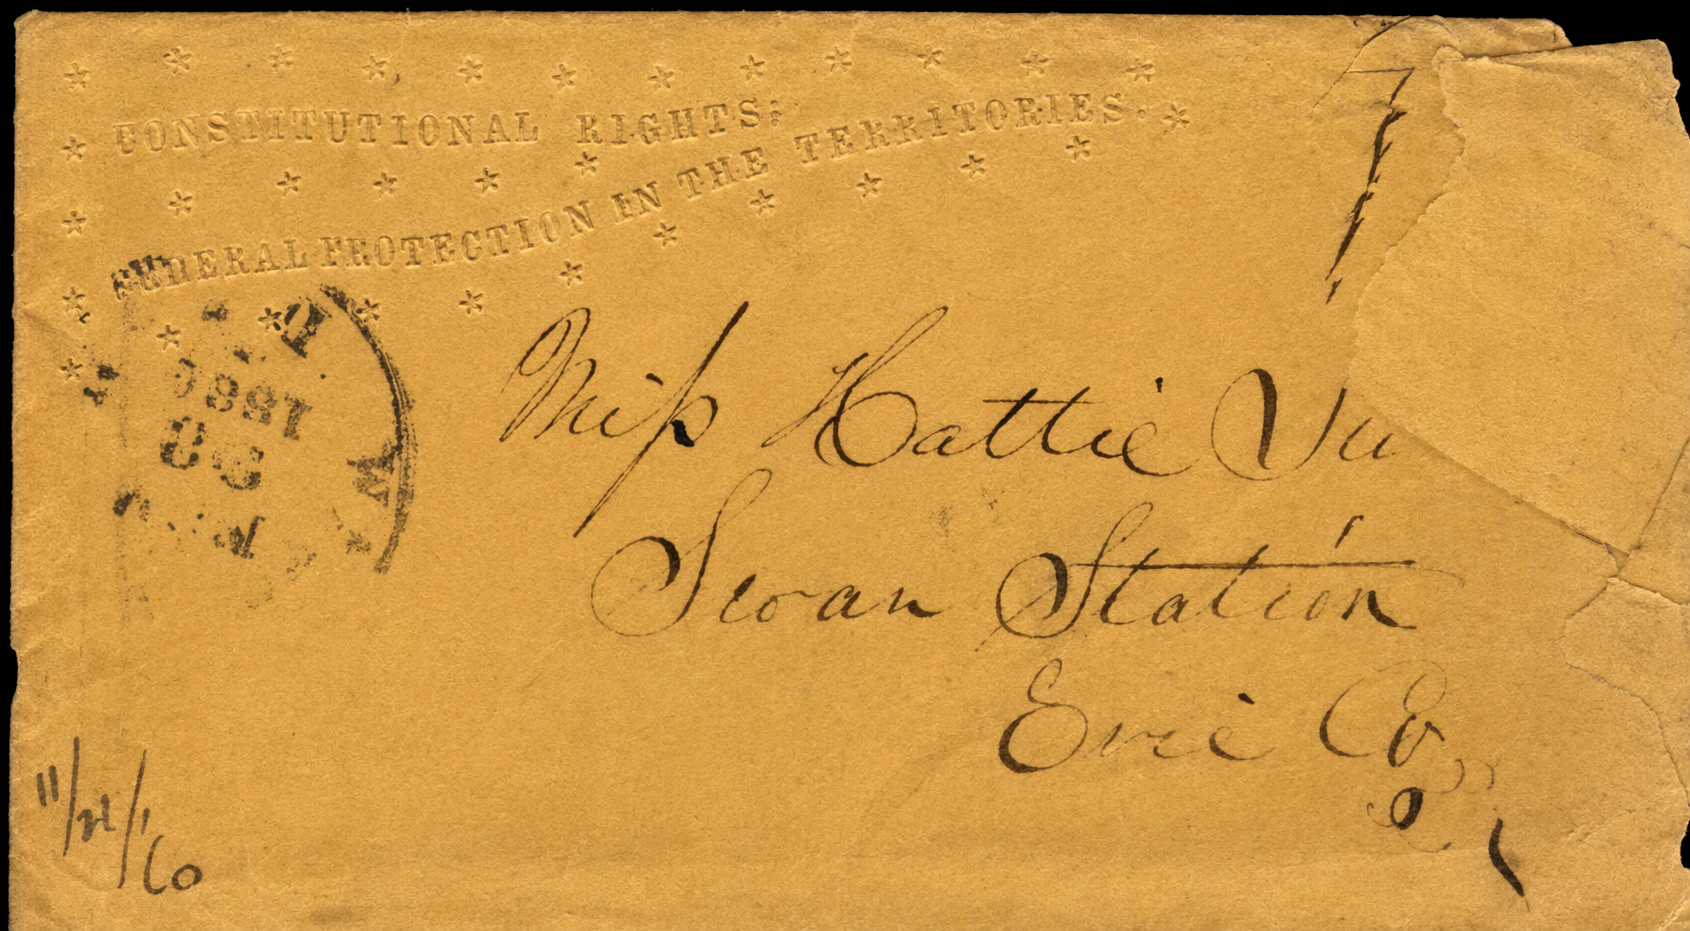 CONSTITUTIONAL RIGHTS;
FEDERAL PROTECTION IN THE TERRITORIES.
1860
Miss Hattie Tu
Swan Station
Erie Co
11/21/'60